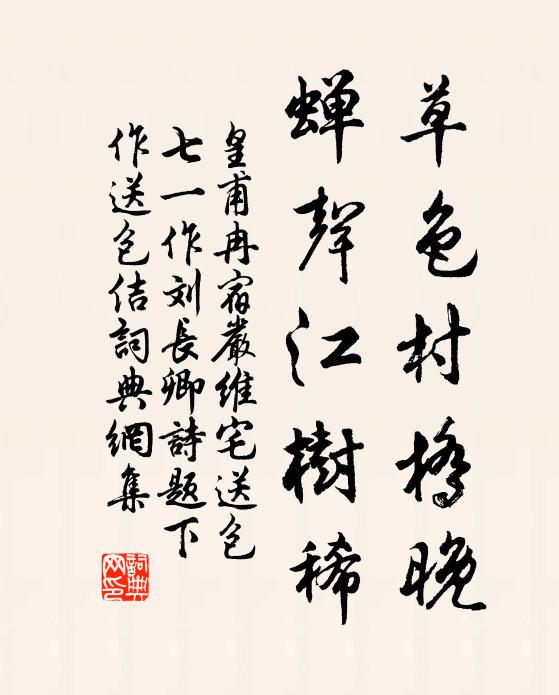 草色村橋晚
蟬聲江樹稀
皇甫冉宿嚴維宅送包
七一作刘長卿詩題下
作送包佶詞典網集
詞典
网印